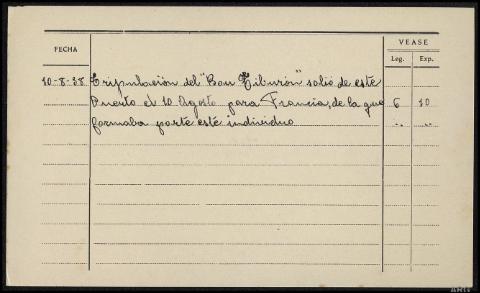 FECHA
VEASE
Leg. Exp.
10-8-38 Tripulación del "Bou Tiburón" salió de este
Puerto el 10 Agosto para Francia, de la que 6 10
formaba parte este individuo " "